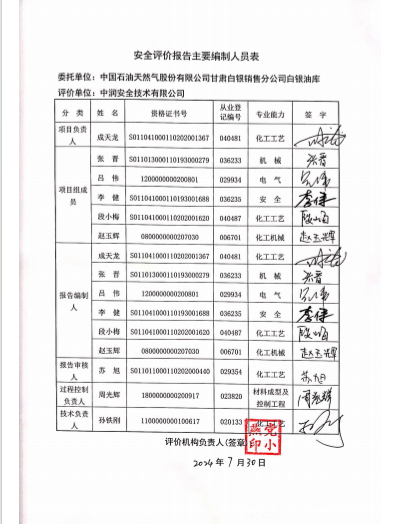 安全评价报告主要编制人员表
委托单位：中国石油天然气股份有限公司甘肃白银销售分公司白银油库
评价单位：中润安全技术有限公司
分 类 姓 名 资格证书号 从业登记编号 专业能力 签 字
项目负责人 成天龙 S011041000110202001367 040481 化工工艺
项目组成员 张 晋 S011013000110193000279 036233 机 械 张晋
吕 伟 1200000000200801 029934 电 气 吕伟
李 健 S011041000110193001688 036235 安 全 李健
段小梅 S011041000110202001620 040487 化工工艺 段小梅
赵玉辉 0800000000207030 006701 化工机械 赵玉辉
报告编制人 成天龙 S011041000110202001367 040481 化工工艺
张 晋 S011013000110193000279 036233 机 械 张晋
吕 伟 1200000000200801 029934 电 气 吕伟
李 健 S011041000110193001688 036235 安 全 李健
段小梅 S011041000110202001620 040487 化工工艺 段小梅
赵玉辉 0800000000207030 006701 化工机械 赵玉辉
报告审核人 苏 旭 S011011000110202000440 029354 化工工艺 苏旭
过程控制负责人 周光辉 1800000000200917 023820 材料成型及控制工程 周光辉
技术负责人 孙铁刚 1100000000100617 020133 化工工艺
评价机构负责人(签章)
2024年7月30日